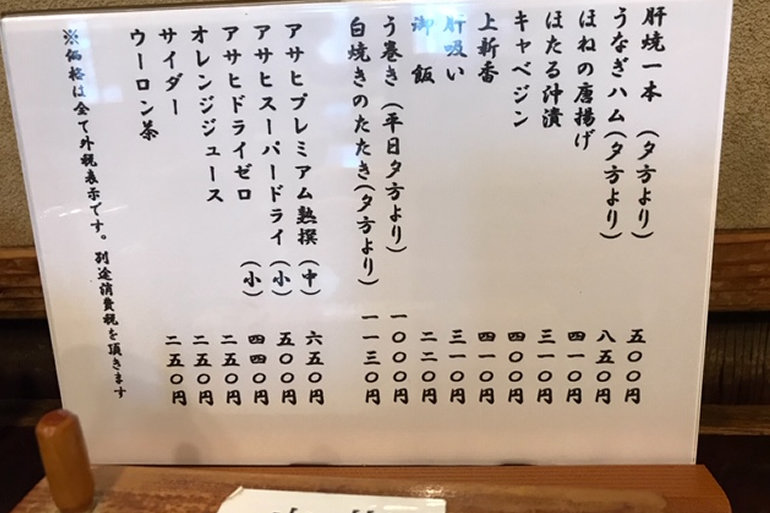 肝焼一本 (夕方より) 五〇〇円
うなぎハム(夕方より) 八五〇円
ほねの唐揚げ 四一〇円
ほたる沖漬 三一〇円
キャベジン 四〇〇円
上新香 四一〇円
肝吸い 三一〇円
御飯 二二〇円
う巻き (平日夕方より) 一〇〇〇円
白焼きのたたき(夕方より) 一一三〇円
アサヒプレミアム熟撰 (中) 六五〇円
アサヒスーパードライ (小) 五〇〇円
アサヒドライゼロ (小) 四四〇円
オレンジジュース 二五〇円
サイダー 二五〇円
ウーロン茶 二五〇円
※価格は全て外税表示です。別途消費税を頂きます